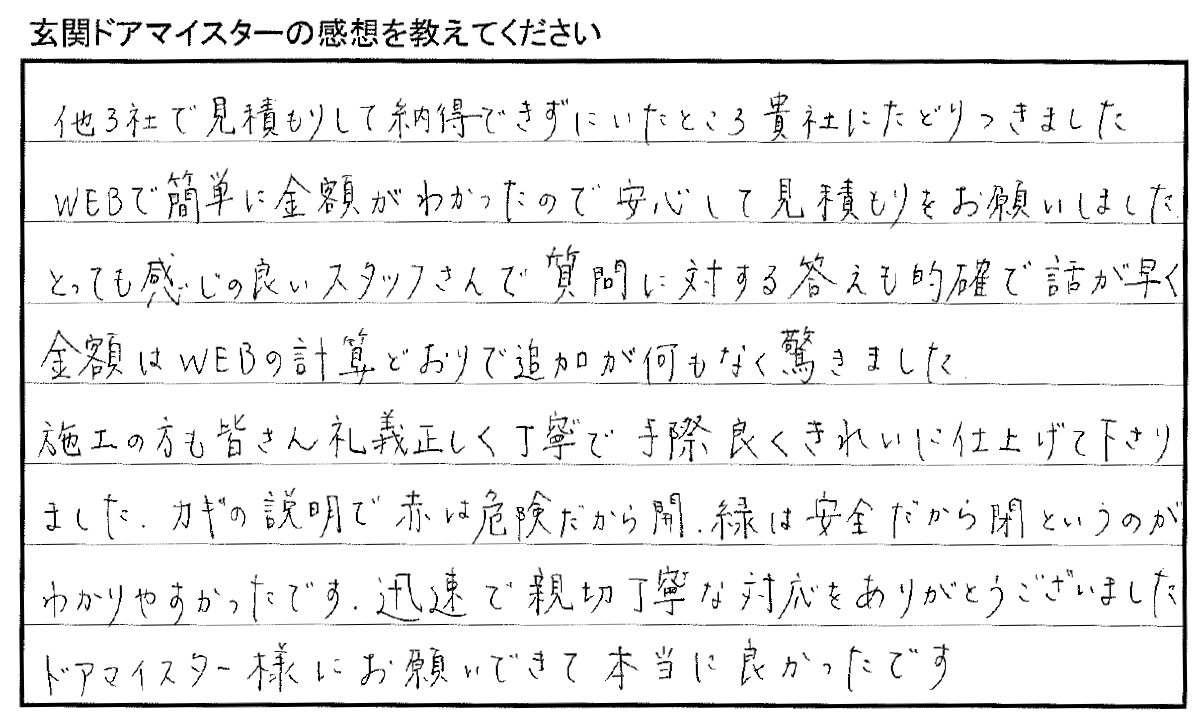 玄関ドアマイスターの感想を教えてください
他3社で見積もりして納得できずにいたところ貴社にたどりつきました
WEBで簡単に金額がわかったので安心して見積もりをお願いしました.
とっても感じの良いスタッフさんで質問に対する答えも的確で話が早く
金額はWEBの計算どおりで追加が何もなく驚きました.
施工の方も皆さん礼義正しく丁寧で手際良くきれいに仕上げて下さり
ました. カギの説明で赤は危険だから開.緑は安全だから閉というのが
わかりやすかったです.迅速で親切丁寧な対応をありがとうございました
ドアマイスター様にお願いできて本当に良かったです